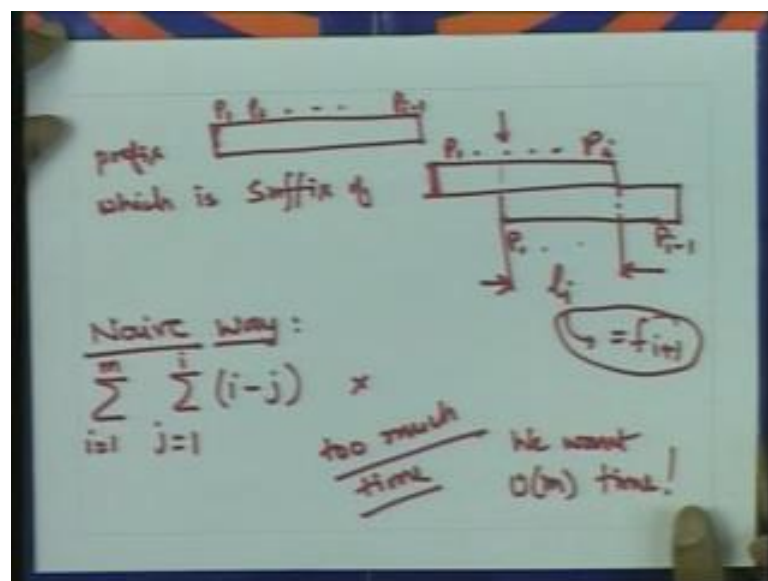 P₁ P₂ . . . . P_{i-1}
prefix
which is suffix of
P₁ . . . . . P_i
P₁ . . P_{i-1}
l_i
↳ = f_{i+1}
Naive way :
∑_{i=1}^{m} ∑_{j=1}^{i} (i-j) ×
too much
time
We want
O(m) time!